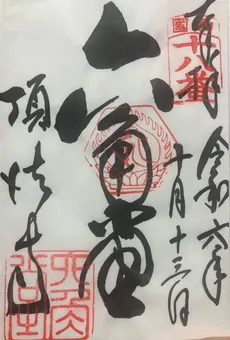 奉拝
令和六年
十月十三日
十八番
六角堂
頂法寺